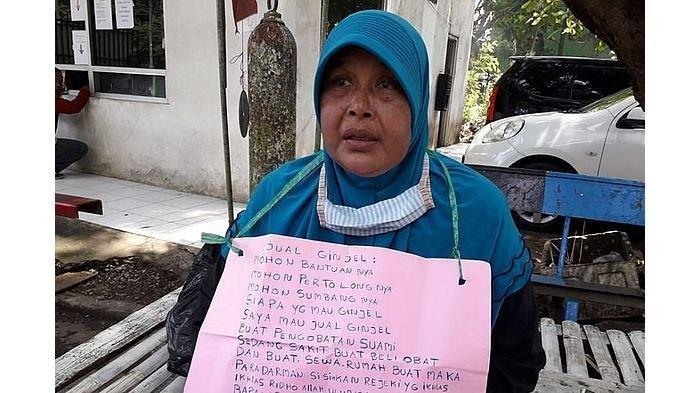 JUAL GINJEL :
MOHON BANTUAN NYA
MOHON PERTOLONGNYA
MOHON SUMBANG NYA
SIAPA YG MAU GINJEL
SAYA MAU JUAL GINJEL
BUAT PENGOBATAN SUAMI
SEDANG SAKIT BUAT BELI OBAT
DAN BUAT. SEWA. RUMAH BUAT MAKA
PARADARMAN. SISIHKAN REJEKI YG IKHLAS
IKHLAS RIDHO ALLAH